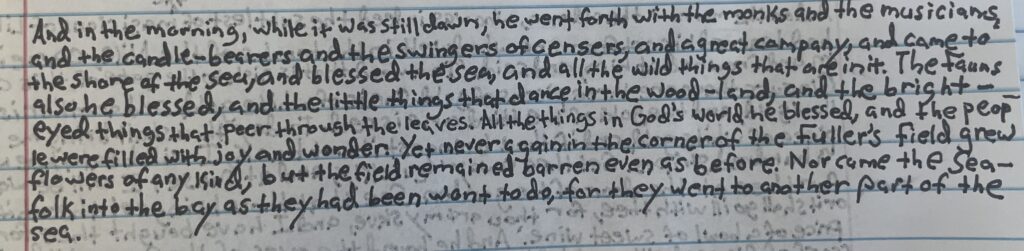 And in the morning, while it was still dawn, he went forth with the monks and the musicians,
and the candle-bearers and the swingers of censers, and a great company, and came to
the shore of the sea, and blessed the sea, and all the wild things that are in it. The fauns
also he blessed, and the little things that dance in the wood-land, and the bright-
eyed things that peer through the leaves. All the things in God's world he blessed, and the peop
le were filled with joy and wonder. Yet never again in the corner of the Fuller's field grew
flowers of any kind, but the field remained barren even as before. Nor came the Sea-
folk into the bay as they had been wont to do, for they went to another part of the
sea.